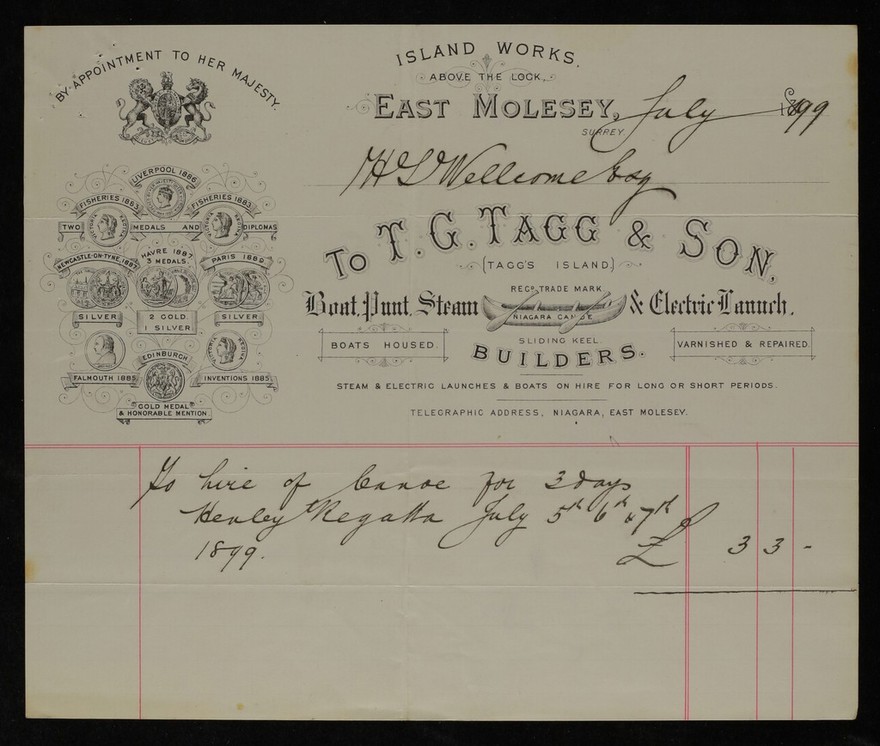 BY APPOINTMENT TO HER MAJESTY.
ISLAND WORKS.
ABOVE THE LOCK,
EAST MOLESEY, July 1899
SURREY
H S Wellcome Esq
LIVERPOOL 1886
FISHERIES 1883 FISHERIES 1883
TWO MEDALS AND DIPLOMAS
VICTORIA REGINA VICTORIA REGINA
NEWCASTLE-ON-TYNE 1887 HAVRE 1887 PARIS 1889
3 MEDALS.
SILVER 2 GOLD SILVER
1 SILVER
EDINBURGH
FALMOUTH 1885 INVENTIONS 1885
GOLD MEDAL
& HONORABLE MENTION
TO T. G. TAGG & SON,
(TAGG'S ISLAND.)
Boat, Punt, Steam & Electric Launch,
REGD TRADE MARK
NIAGARA CANOE
SLIDING KEEL
BOATS HOUSED. BUILDERS. VARNISHED & REPAIRED.
STEAM & ELECTRIC LAUNCHES & BOATS ON HIRE FOR LONG OR SHORT PERIODS.
TELEGRAPHIC ADDRESS, NIAGARA, EAST MOLESEY.
To hire of Canoe for 3 days
Henley Regatta July 5th 6th & 7th
1899. £ 3 3 -